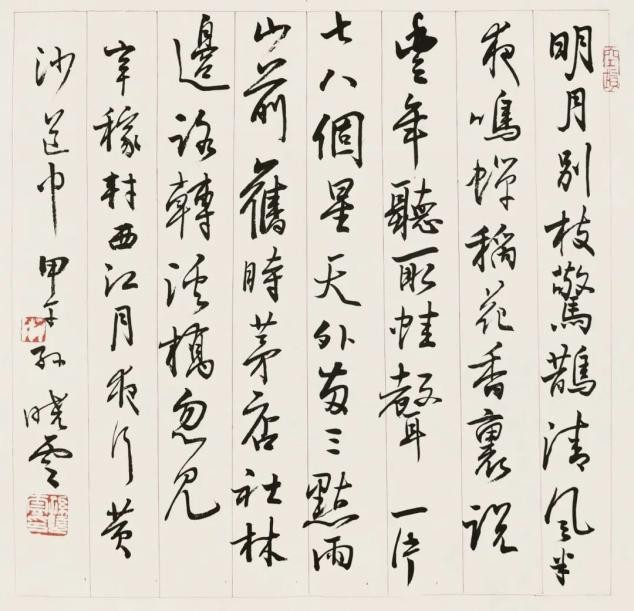 明月別枝驚鵲清風半
夜鳴蟬稻花香裏說
豐年聽取蛙聲一片
七八個星天外兩三點雨
山前舊時茅店社林
邊路轉溪橋忽見
辛稼軒西江月夜行黃
沙道中 甲午孫曉雲